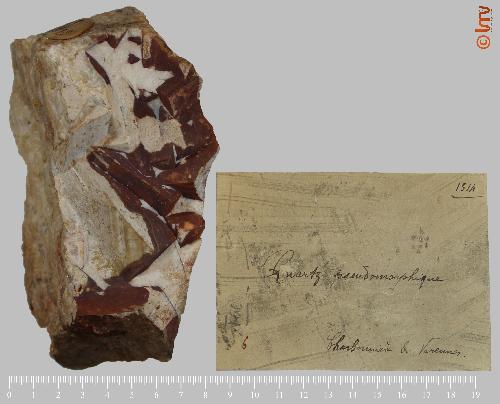 1514
Quartz pseudomorphique
6
Varennes.
0 1 2 3 4 5 6 7 8 9 10 11 12 13 14 15 16 17 18 19